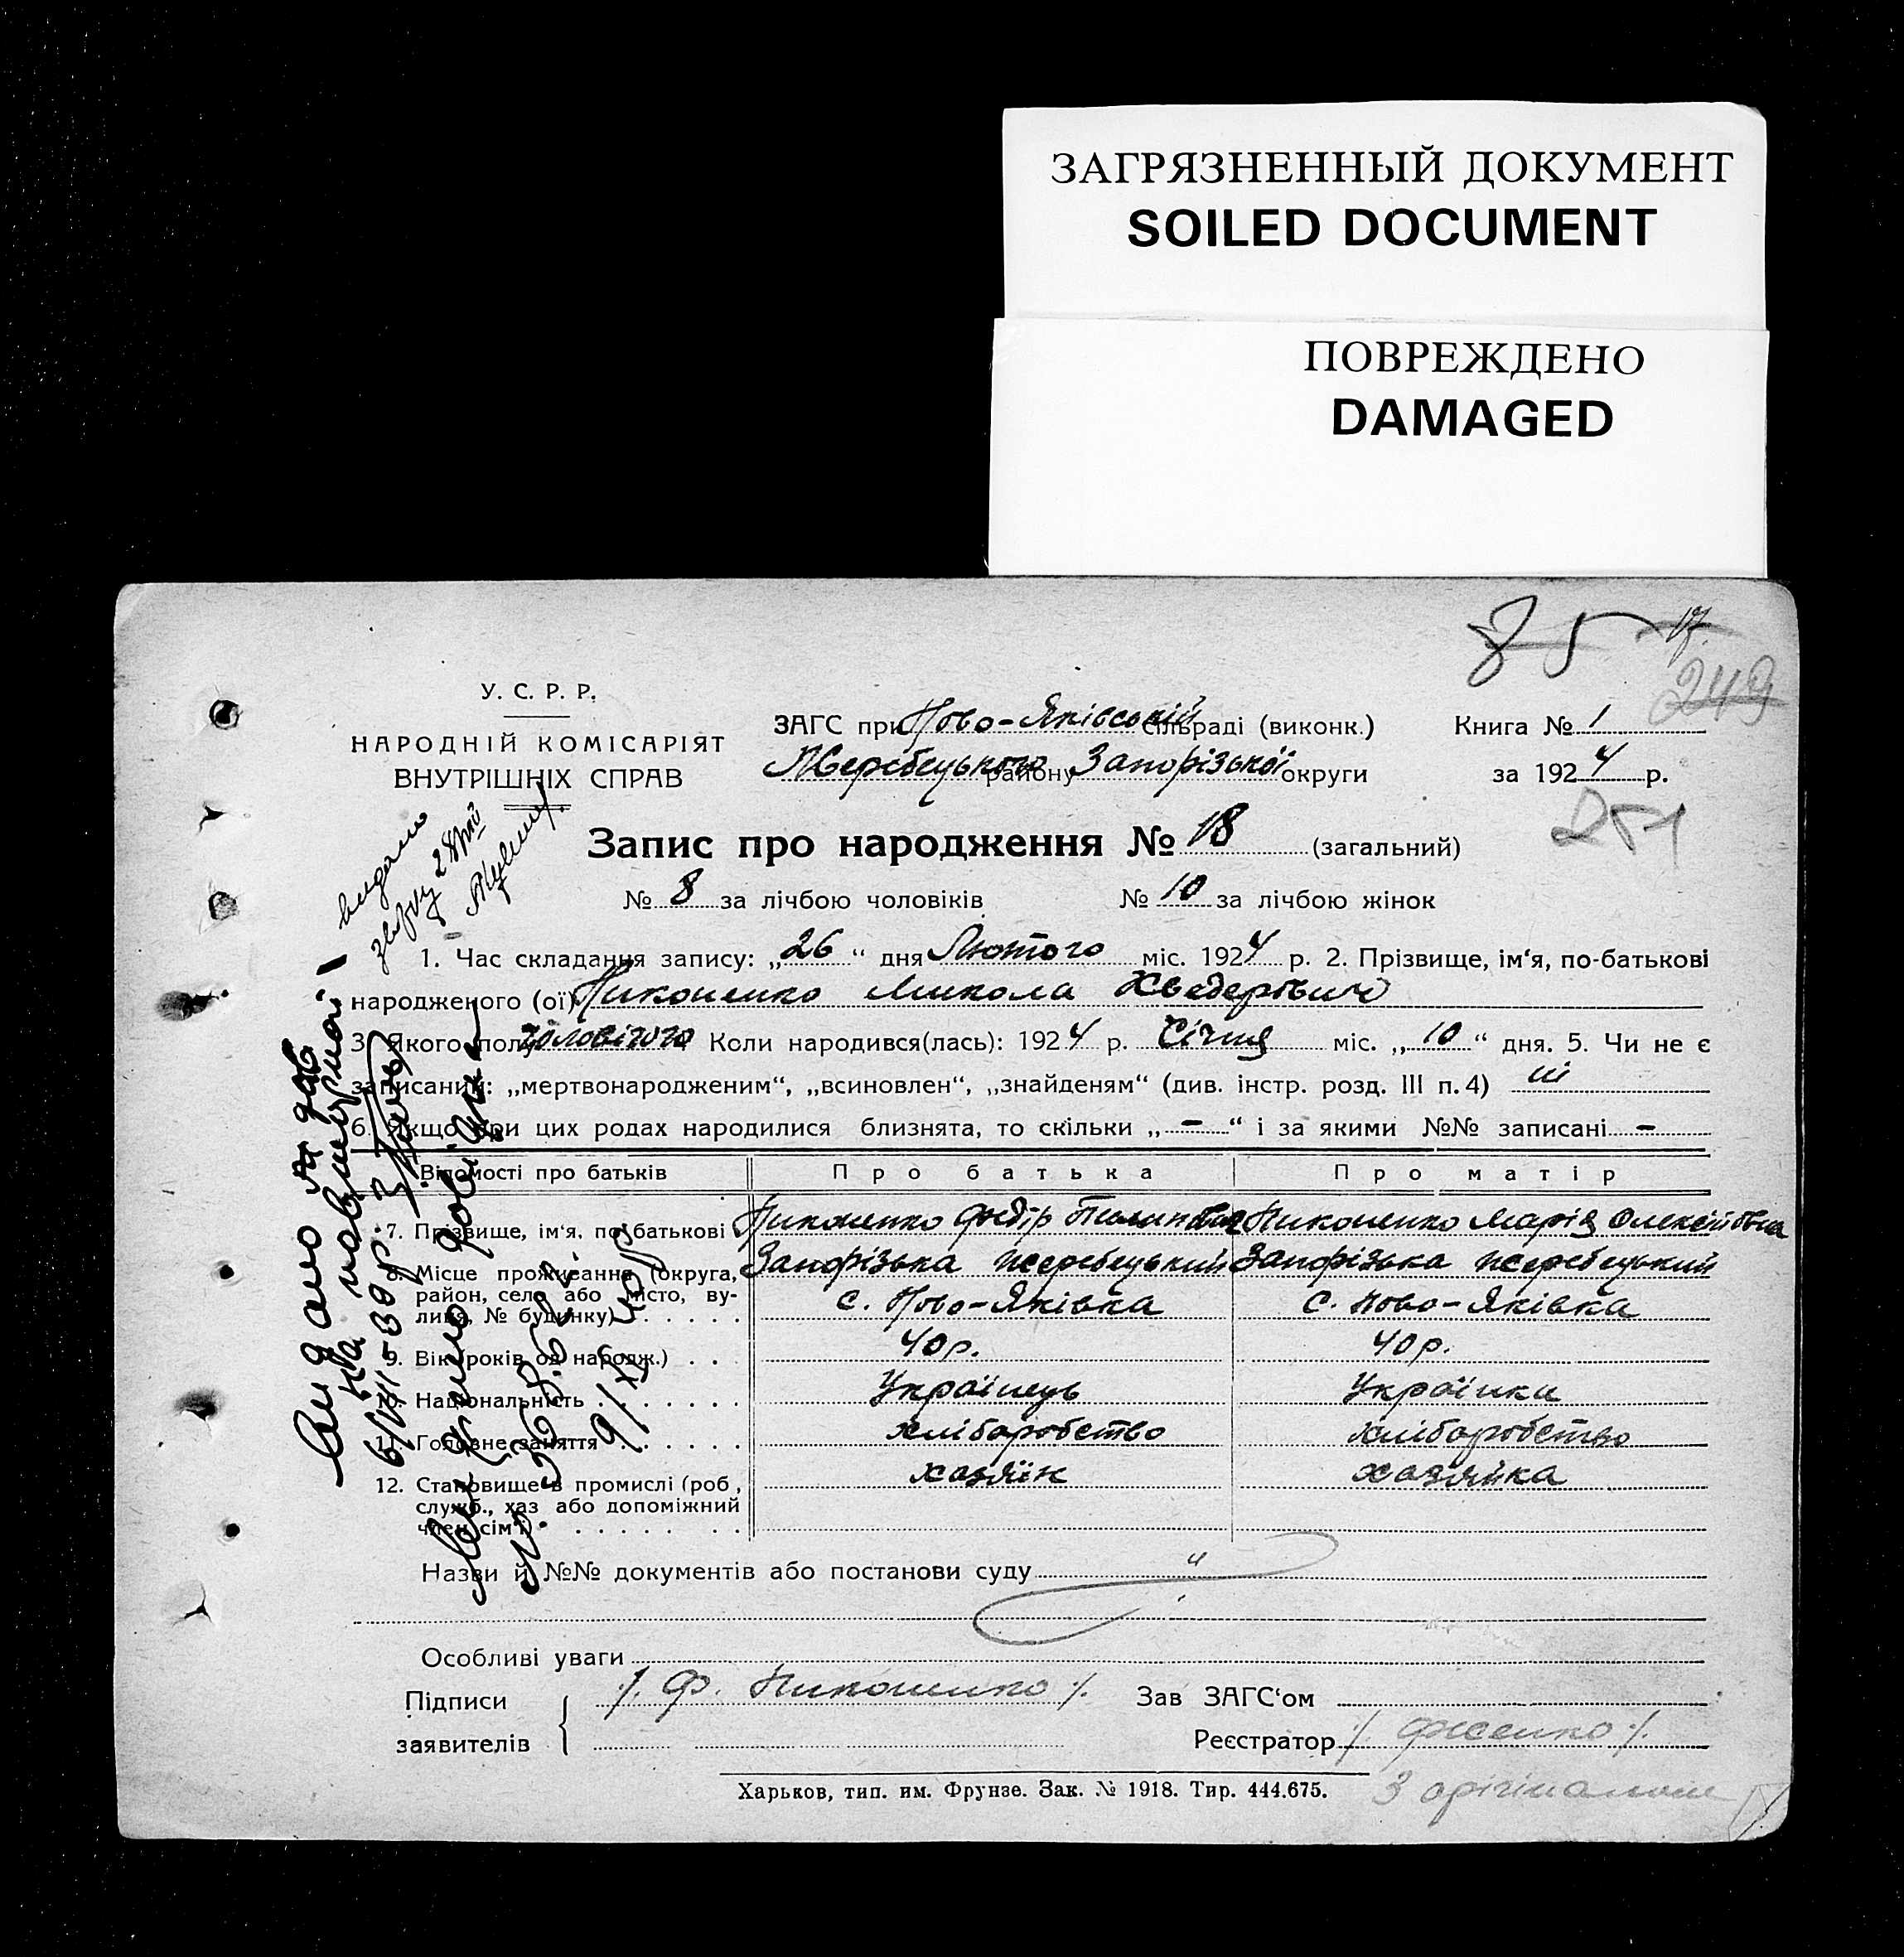 ЗАГРЯЗНЕННЫЙ ДОКУМЕНТ
SOILED DOCUMENT
ПОВРЕЖДЕНО
DAMAGED
85 17.
249
У. С. Р. Р.
НАРОДНІЙ КОМІСАРІЯТ
ВНУТРІШНІХ СПРАВ
ЗАГС при Ново-Яківській сільраді (виконк.) Книга № 1
Жеребецького району Запорізької округи за 1924 р.
251
Запис про народження № 18 (загальний)
№ 8 за лічбою чоловіків № 10 за лічбою жінок
1. Час складання запису: „26“ дня Лютого міс. 1924 р. 2. Прізвище, ім‘я, по-батькові
народженого (ої) Никоненко Микола Хведерович
3. Якого полу чоловічого Коли народився(лась): 1924 р. Січня міс. „10“ дня. 5. Чи не є
записаний: „мертвонародженим“, „всиновлен“, „знайденям“ (див. інстр. розд. III п. 4) ні
6. Якщо при цих родах народилися близнята, то скільки „–“ і за якими №№ записані –
Відомості про батьків Про батька Про матір
7. Прізвище, ім‘я, по батькові Никоненко Федір Никоненко Марія Олексіївна
8. Місце проживання (округа, район, село або місто, вулиця, № будинку) Запорізька Жеребецький Запорізька Жеребецький
с. Ново-Яківка с. Ново-Яківка
9. Вік (років од народж.) 40 р. 40 р.
10. Національність Українець Українка
11. Головне заняття хліборобство хліборобство
12. Становище в промислі (роб, служб., хаз або допоміжний член сім‘ї) хазяїн хазяйка
Назви й №№ документів або постанови суду „
Особливі уваги
Підписи заявителів /. Ф. Никоненко /. Зав ЗАГС‘ом
Реєстратор
Харьков, тип. им. Фрунзе. Зак. № 1918. Тир. 444.675.
З орігіналом
видано
Видано